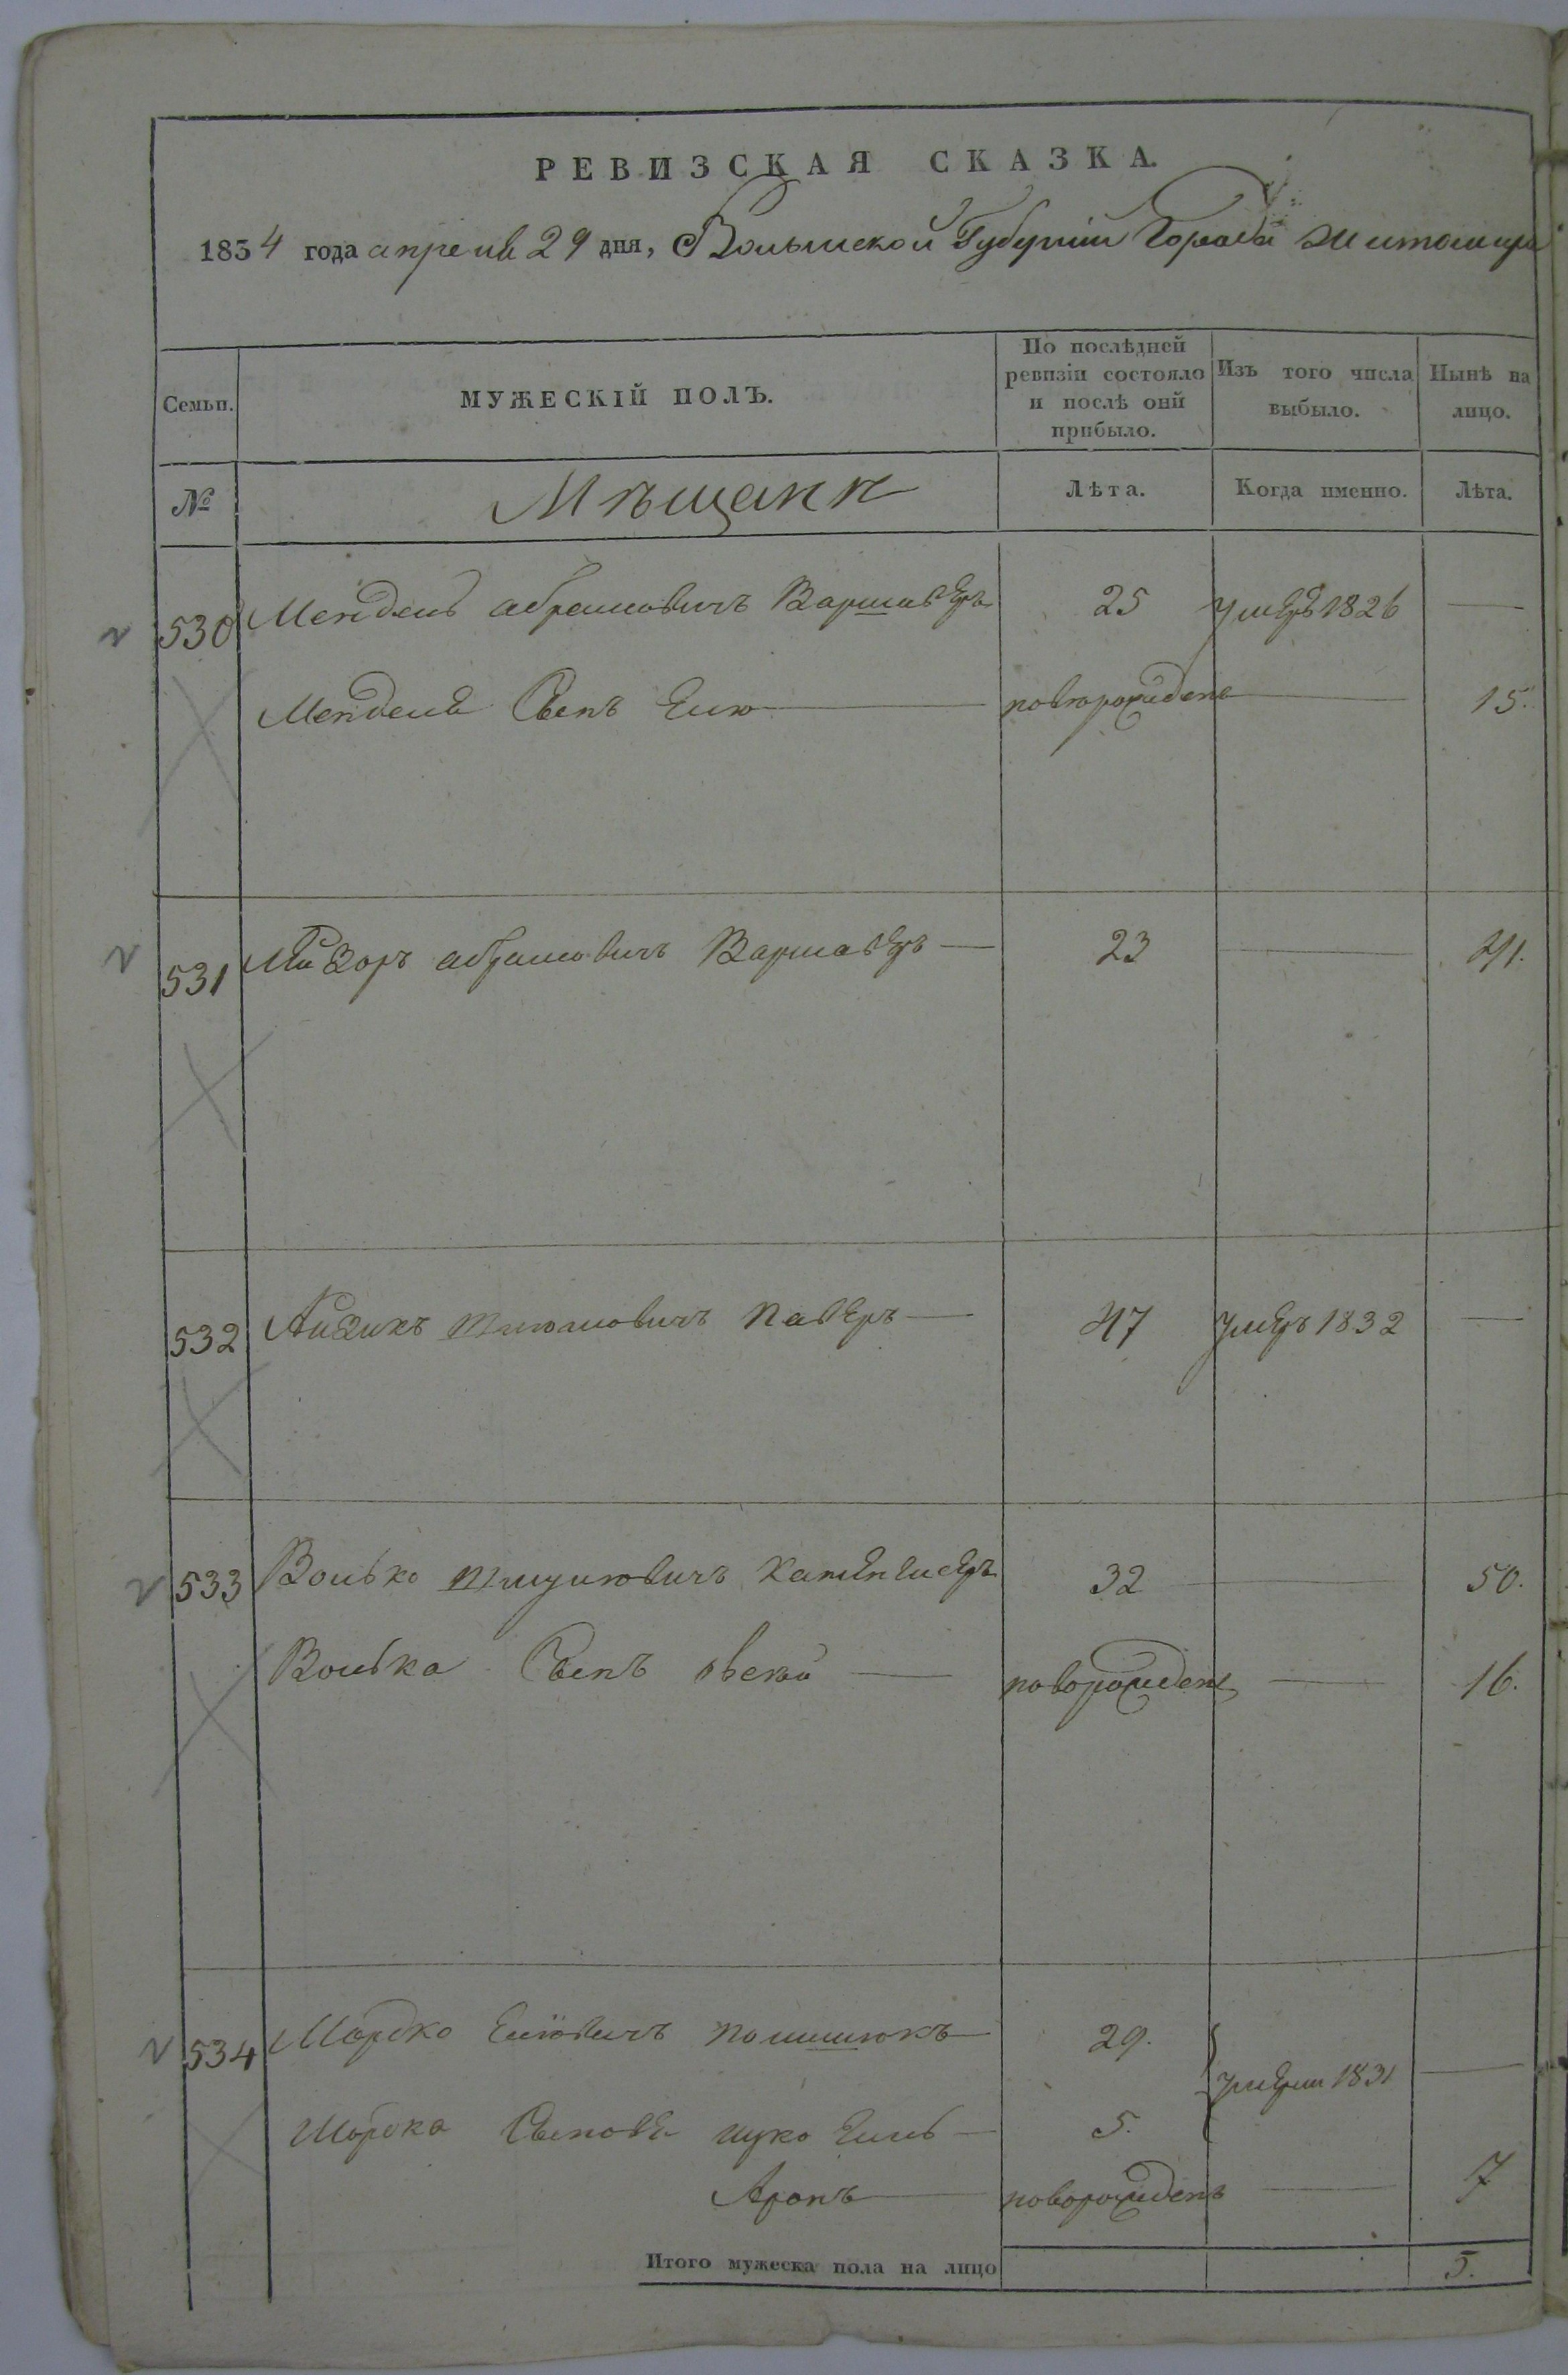 РЕВИЗСКАЯ СКАЗКА.
1834 года апреля 29 дня, Волынской Губернии Города Житомира
Семьи.
МУЖЕСКІЙ ПОЛЪ.
По послѣдней ревизіи состояло и послѣ оній прибыло.
Изъ того числа выбыло.
Нынѣ на лицо.
№
Мѣщане
Лѣта.
Когда именно.
Лѣта.
530 Мендель абрамовичъ Варшаверъ 25 умеръ 1826 —
Менделя Сынъ Елю новорожденъ — 15.
531 абрамовичъ Варшаверъ — 23 — 41.
532 Айзикъ 47 умеръ 1832 —
533 Волько 32 — 50.
Волька Сынъ — новорожденъ — 16.
534 Мордко Еліовичъ 29. умерли 1831 —
Мордка Сыновья 5.
Аронъ новорожденъ — 7
Итого мужеска пола на лицо 5.